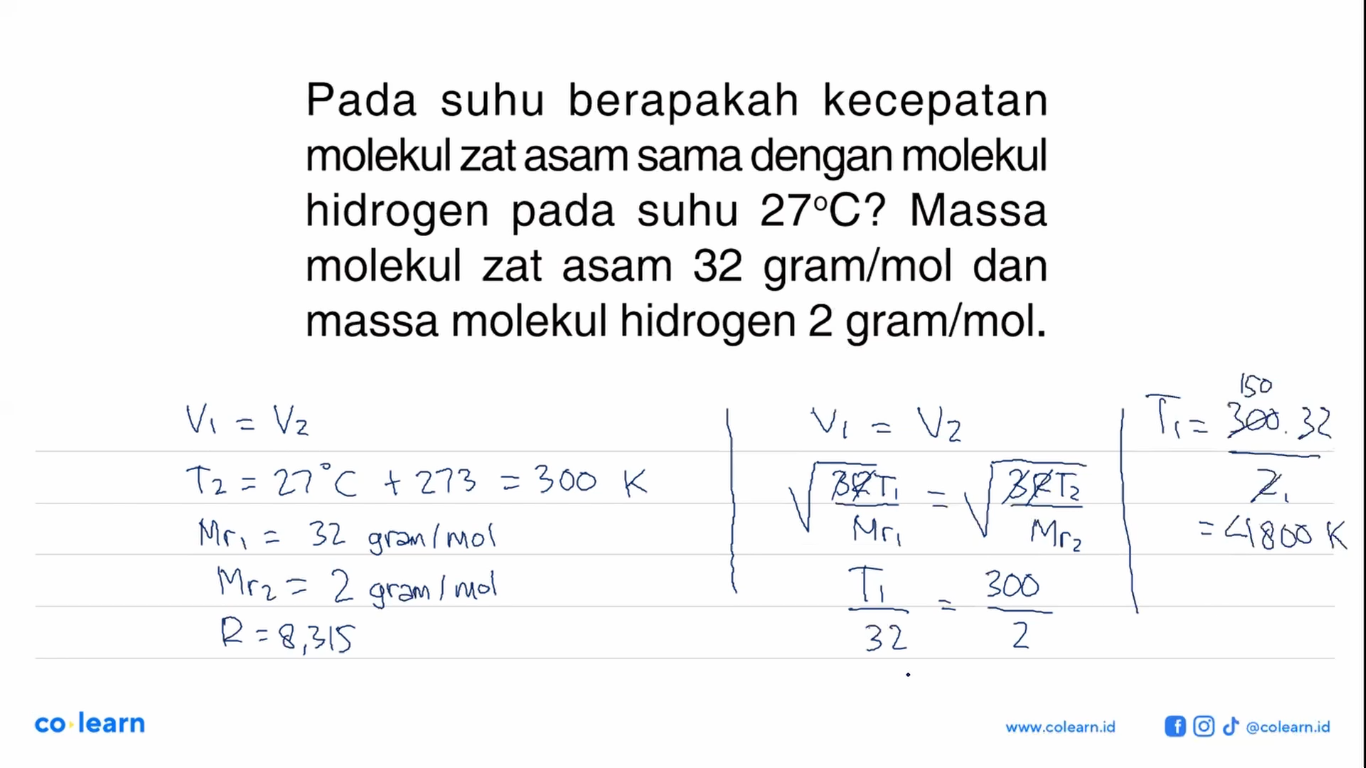 Pada suhu berapakah kecepatan
molekul zat asam sama dengan molekul
hidrogen pada suhu 27°C? Massa
molekul zat asam 32 gram/mol dan
massa molekul hidrogen 2 gram/mol.
V₁ = V₂
T₂ = 27°C + 273 = 300 K
Mr₁ = 32 gram/mol
Mr₂ = 2 gram/mol
R = 8,315
V₁ = V₂
√(3RT₁/Mr₁) = √(3RT₂/Mr₂)
T₁/32 = 300/2
150
T₁ = 300.32
2 1
= 4800 K
co learn
www.colearn.id
@colearn.id